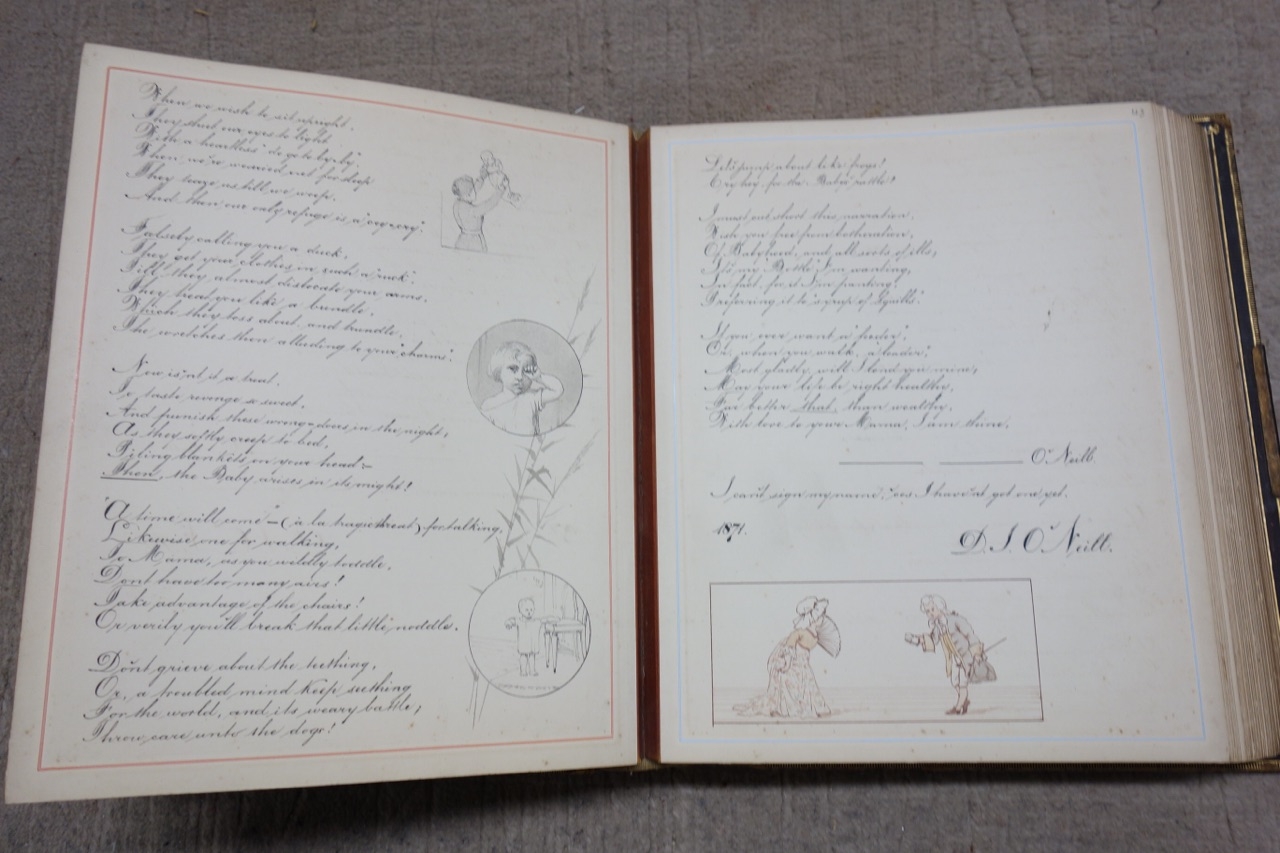 When we wish to sit upright.
They shut our eyes to light
With a heartless "do go to byeby".
When, we're wearied out for sleep
They tease us till we weep.
And then our only refuge is a "cry-cry".
Falsely calling you a duck,
They get your clothes in such a "ruck".
Till they almost dislocate your arms.
They treat you like a bundle.
Which they toss about, and trundle.
The wretches then alluding to your "charms".
Now is'nt it a treat.
To taste revenge so sweet,
And punish these wrong-doers in the night,
As they softly creep to bed,
Piling blankets on your head –
Then, the Baby arises in its might!
"A time will come" – (à la tragic threat) for talking,
Likewise one for walking,
To Mama, as you wildly toddle.
Dont have too many airs!
Take advantage of the chairs!
Or verily you'll break that little noddle.
Don't grieve about the teething,
Or, a troubled mind keep seething
For the world, and its weary battle;
Throw care unto the dogs!
43
Let's jump about like frogs!
Cry hey, for the Babies rattle!
I must cut short this narration.
Wish you free from botheration,
Of Babyhood, and all sorts of ills;
It's my Bottle I'm wanting,
In fact, for it I'm panting!
Preferring it to syrup of Squills.
If you ever want a "feeder",
Or, when you walk, a "leader",
Most gladly will I lend you mine,
May your life be right healthy,
Far better that, than wealthy,
With love to your Mama, I am thine,
O'Neill.
I can't sign my name, 'cos I hav'nt got one yet.
1871.
D. I. O'Neill.